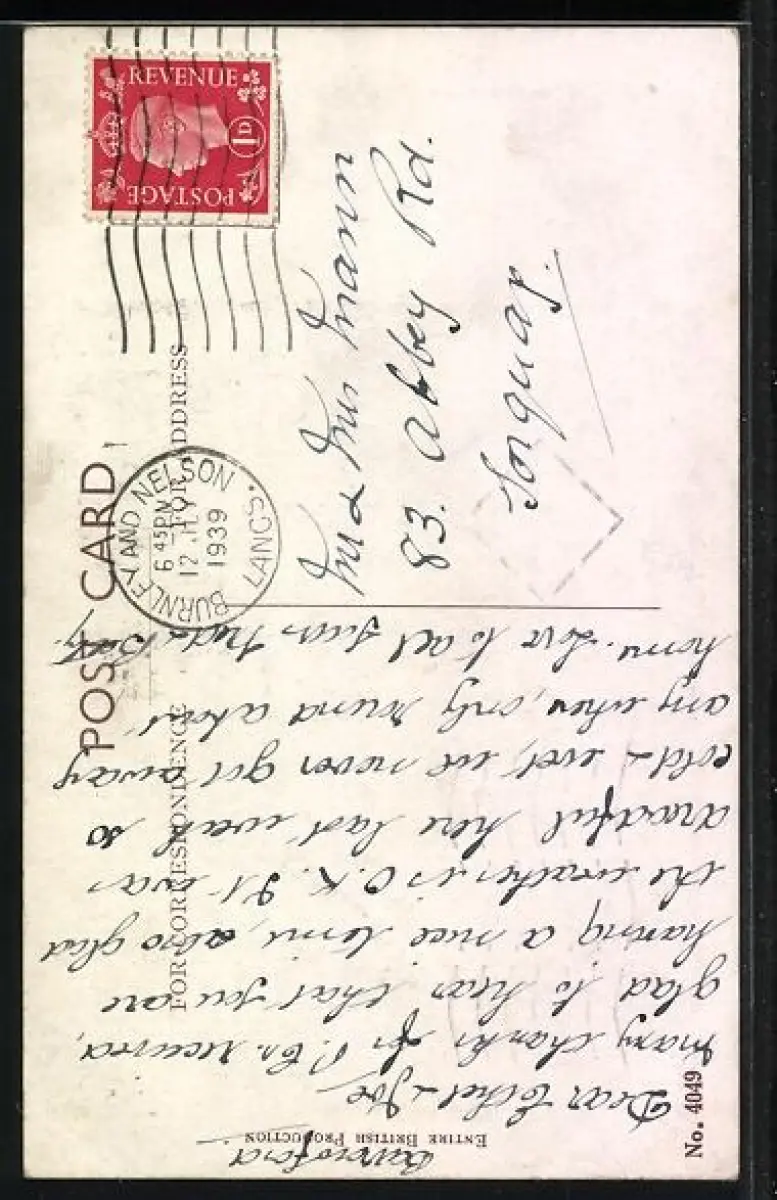 POST CARD
FOR CORRESPONDENCE
FOR ADDRESS
REVENUE
1D
POSTAGE
BURNLEY AND NELSON
6 45 PM
12 JLY
1939
LANCS.
Mr & Mrs Mann
83. Abbey Rd.
Torquay.
Dear Ethel & Joe
Many thanks for P. Cs. received,
glad to hear that you are
having a nice time, also glad
the weather is O.K. It was
dreadful here last week so
cold & wet, we never got away
any where, only round about
home. Love to all from
ENTIRE BRITISH PRODUCTION
No. 4049